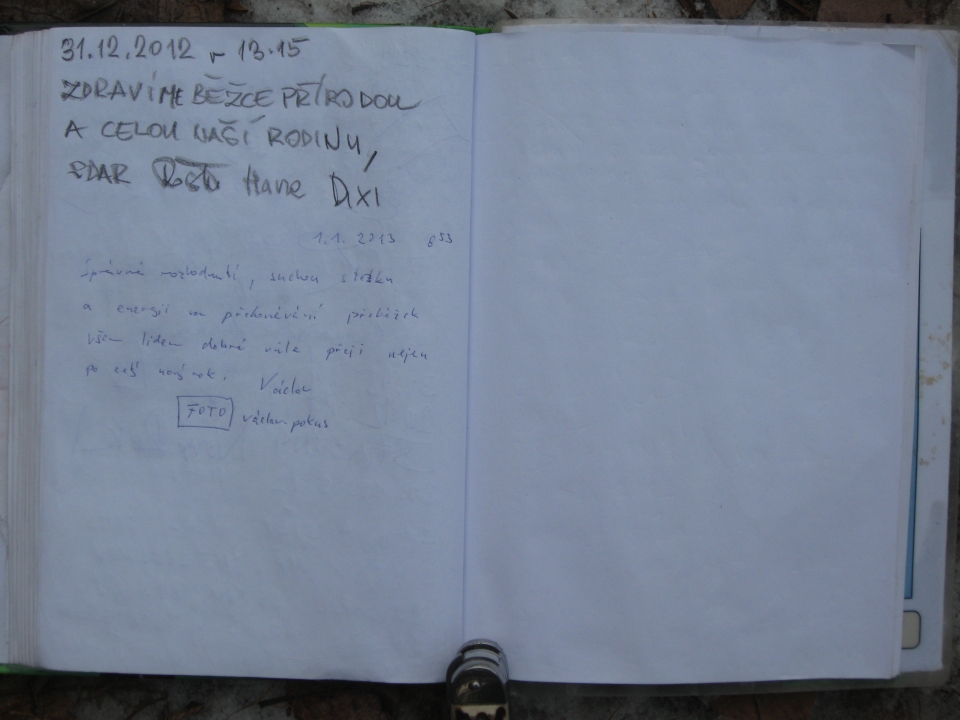 31.12.2012 v 13.15
ZDRAVÍME BĚŽCE PŘÍRODOU
A CELOU NAŠÍ RODINU,
ZDAR Hane DIXI
1.1. 2013 8 53
Správná rozhodnutí, suchou stezku
a energii na překonávání překážek
všem lidem dobré vůle přeji nejen
po celý nový rok. Václav
FOTO václav pokus